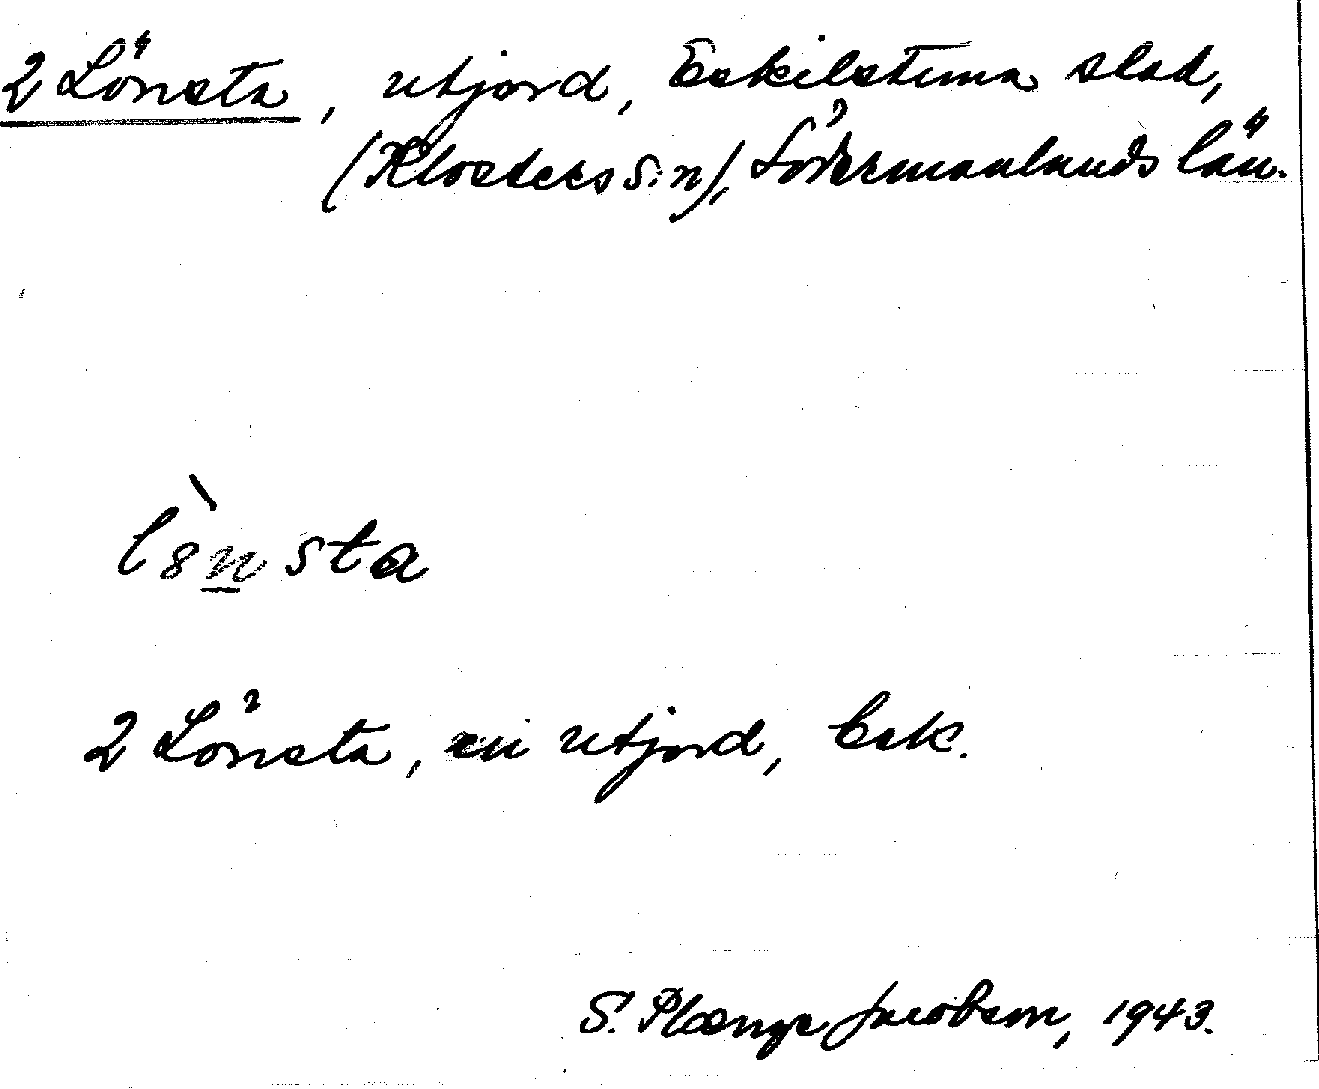 2 Lönsta, utjord, Eskilstuna stad,
(Klosters s:n), Södermanlands län.
ls̀n̲sta
2 Lönsta, en utjord, Eek.
S. Plænge Jacobson, 1943.